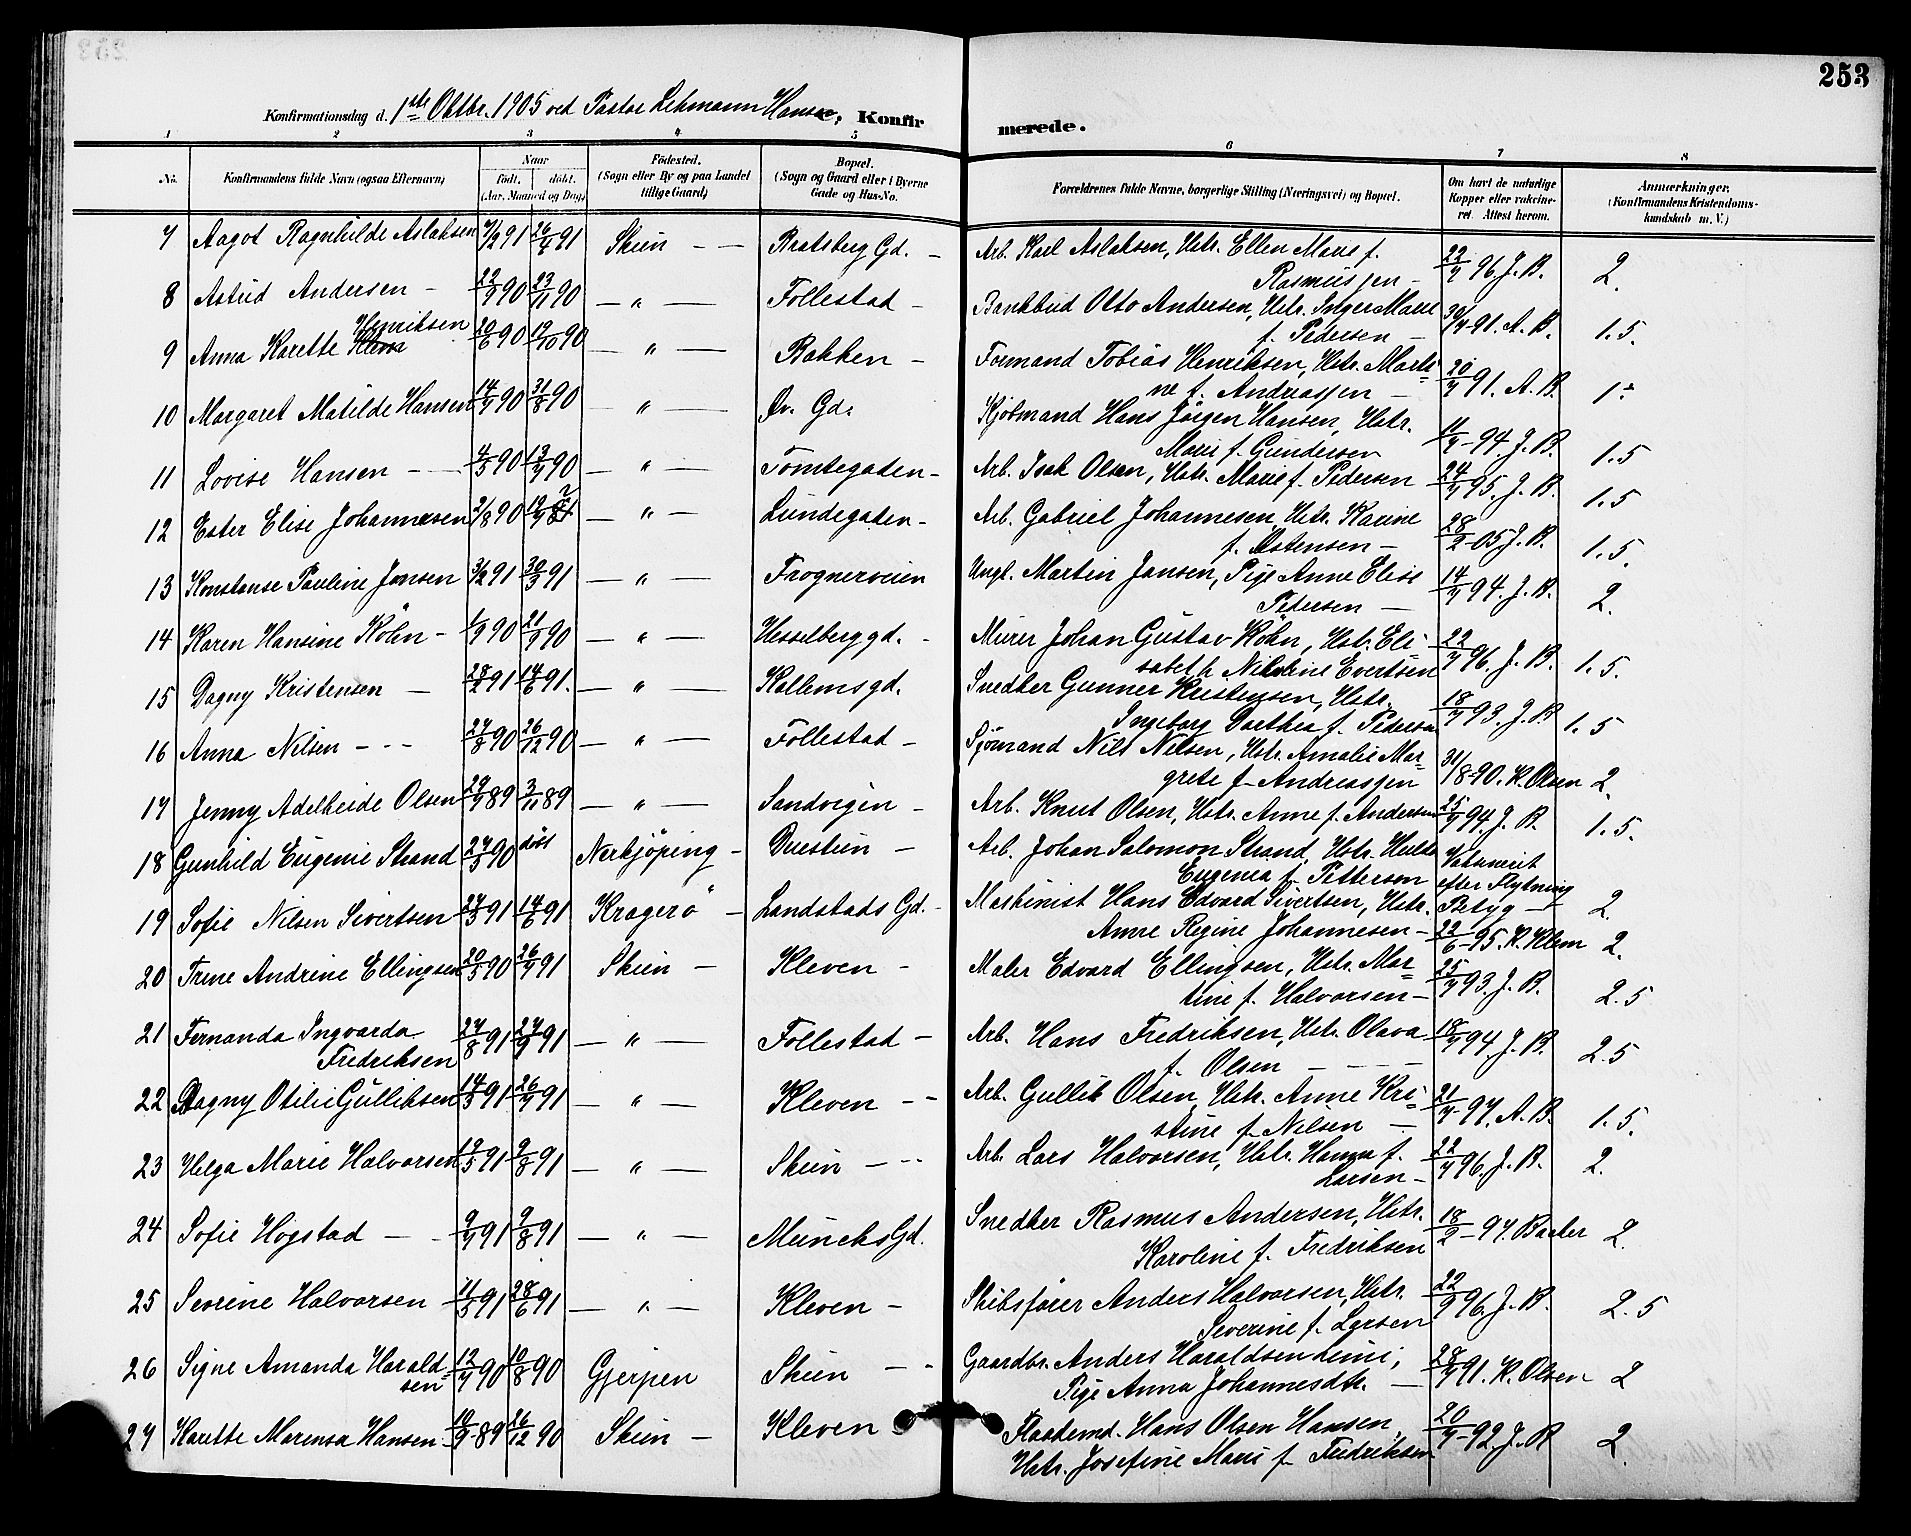 253
Konfirmationsdag d. 1ste Oktbr. 1905 ved Pastor Lehmann Hansen, Konfirmerede.
1 2 3 4 5 6 7 8
No. Konfirmandens fulde Navn (ogsaa Efternavn) Naar født. døbt. (Aar, Maaned og Dag) Fødested. (Sogn eller By og paa Landet tillige Gaard) Bopæl. (Sogn og Gaard eller i Byerne Gade og Hus-No. Forældrenes fulde Navne, borgerlige Stilling (Næringsvei) og Bopæl. Om havt de naturlige Kopper eller vakcineret. Attest herom. Anmærkninger. (Konfirmandens Kristendomskundskab m. V.)
7 Aagot Ragnhilde Aslaksen 7/2 91 26/4 91 Skien — — Bratsberg Gd. — Arb. Karl Aslaksen, Hstr. Ellen Marie f. Rasmussen — 22/7 96. J. B. 2.
8 Astrid Andersen — 22/9 90 23/11 90 — " — Follestad — Bankbud Otto Andersen, Hstr. Inger Marie f. Pedersen — 30/4 91. A. B. 1.5.
9 Anna Karette Henriksen 20/6 90 19/10 90 — " — Bakken — Formand Tobias Henriksen, Hstr. Martine f. Andreassen — 20/7 91. A. B. 1÷
10 Margaret Matilde Hansen 14/7 90 31/8 90 — " — Øv. Gd. Kjøbmand Hans Jörgen Hansen, Hstr. Marie f. Gundersen 11/7 94. J. B. 1.5
11 Lovise Hansen — 4/5 90 13/7 90 — " — Tömtegaden — Arb. Isak Olsen, Hstr. Marie f. Pedersen 24/7 95. J. B. 1.5
12 Ester Elise Johannesen 2/8 90 — " — Lundegaden — Arb. Gabriel Johannesen, Hstr. Karine f. Østensen — 28/2 05 J. B. 1.5.
13 Konstanse Pauline Jansen 3/2 91 30/3 91 — " — Frognerveien Ungk. Martin Jansen, Pige Anne Elise Pedersen — 14/7 94. J. B. 2.
14 Karen Hansine Köhn — 1/7 90 21/9 90 — " — Hesselberg gd. — Murer Johan Gustav Köhn, Hstr. Elisabeth Nilsine Evertsen 22/7 96. J. B. 1.5.
15 Dagny Kristensen — 28/2 91 14/6 91. — " — Kallemsgd. Snedker Gunner Kristensen, Hstr. Ingeborg Dorthea f. Pedersen 18/7 93. J. B. 1.5
16 Anna Nilsen — 27/8 90 26/12 90 — " — Follestad — Sjømand Nils Nilsen, Hstr. Amalie Margrete f. Andreassen 31/8 90. K. Olsen 2.
17 Jenny Adelheide Olsen 29/7 89 3/11 89 — " — Sandvigen — Arb. Knut Olsen, Hstr. Anne f. Andersen 25/7 94. J. B. 1.5.
18 Gunhild Eugenie Strand 27/5 90 döbt Nerkjöping — Duestien — Arb. Johan Salomon Strand, Hstr. Hulda Eugenia f. Petterson Vakcineret efter Flytnings Betyg — 2.
19 Sofie Nilsen Sivertsen 27/3 91 14/6 91 Kragerö — Landstads Gd. — Maskinist Hans Edvard Sivertsen, Hstr. Anne Regine Johannesen — 22/6 95. K. Klem 2.
20 Trine Andrine Ellingsen 20/5 90 26/7 91 Skien — Kleven — Maler Edvard Ellingsen, Hstr. Martine f. Halvorsen — 25/7 93. J. B. 2.5
21 Fernanda Ingvarda Fredriksen 27/8 91 27/9 91 — " — Follestad — Arb. Hans Fredriksen, Hstr. Olava f. Olsen — 18/7 94. J. B. 2.5
22 Dagny Otilie Gulliksen 14/5 91 26/7 91 — " — Kleven — Arb. Gullik Olsen, Hstr. Anne Kristine f. Nilsen — 21/7 97. A. B. 1.5.
23 Helga Marie Halvorsen 19/5 91 9/8 91 — " — Skien — Arb. Lars Halvorsen, Hstr. Hanna f. Larsen — 22/7 96. J. B. 2.
24 Sofie Hogstad — 9/7 91 9/8 91 — " — Müncks Gd. Snedker Rasmus Andersen, Hstr. Karoline f. Fredriksen 18/2 97. Backer 2.
25 Severine Halvorsen 11/5 91 28/6 91 — " — Kleven — Skibsfører Anders Halvorsen, Hstr. Severine f. Larsen 22/9 96. J. B. 2.5
26 Signe Amanda Haraldsen 12/7 90 10/8 90 Gjerpen Skien — Gaardbr. Anders Haraldsen Limi, Pige Anna Johannesdtr. — 28/7 91. K. Olsen 2
27 Karette Marensa Hansen 26/12 90 Skien — Kleven Flaademd. Hans Olsen Hansen, Hstr. Josefine Marie f. Fredriksen 20/7 92. J. B 2.